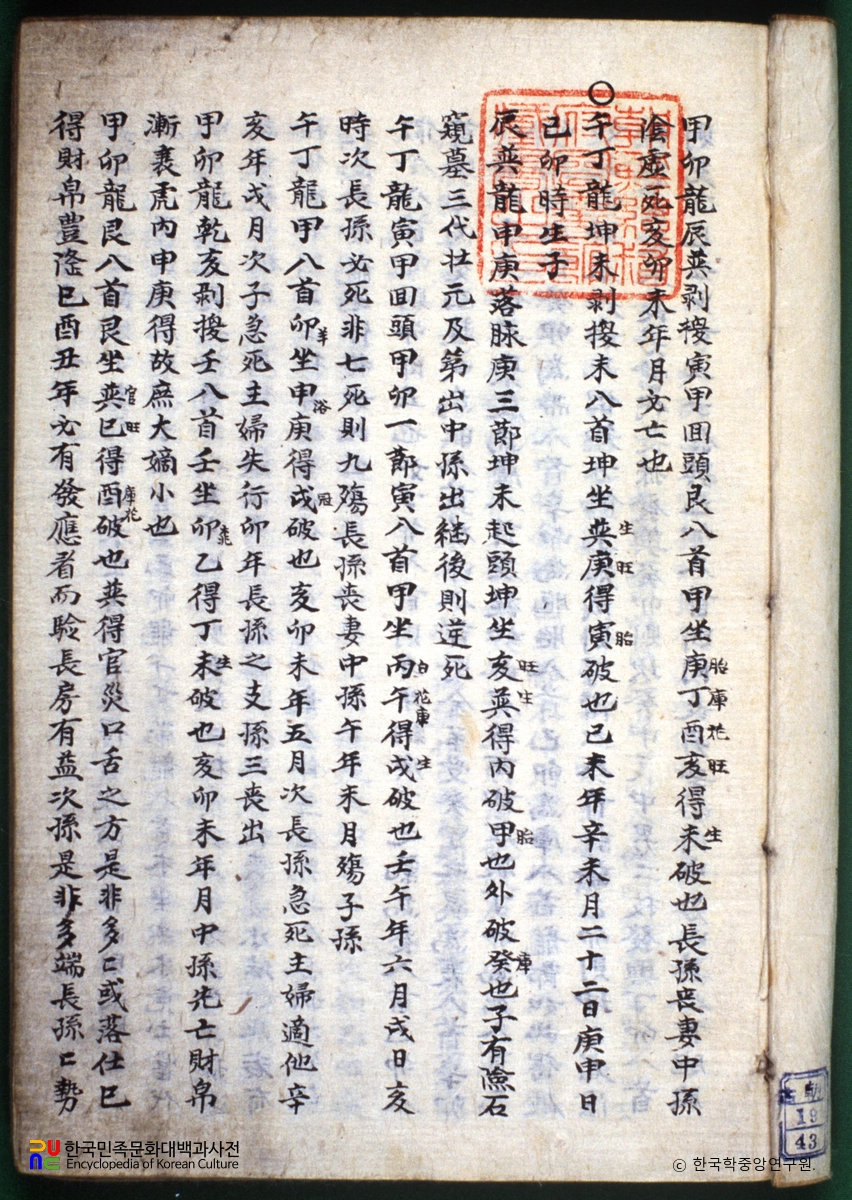 甲卯龍辰巽剥換寅甲回頭艮八首甲坐庚丁酉亥得未破也長孫喪妻中孫
胎庫花旺生
陰虛死亥卯未年月必亡也
○午丁龍坤未剥換未八首坤坐巽庚得寅破也己未年辛未月二十二日庚申日
生旺胎
己卯時生子
辰巽龍申庚落脉庚三節坤未起頭坤坐亥巽得内破甲也外破癸也子有險石
旺生胎庫
窺墓三代壯元及第出中孫出繼後則逆死
午丁龍寅甲回頭甲卯一節寅八首甲坐丙午得戌破也壬午年六月戌日亥
花庫生
時次長孫必死非七死則九殤長孫喪妻中孫午年未月殤子孫
午丁龍甲八首卯坐申庚得戌破也亥卯未年五月次長孫急死主婦適他辛
羊浴冠
亥年戌月次子急死主婦失行卯年長孫之支孫三喪出
甲卯龍乾亥剥換壬八首壬坐卯乙得丁未破也亥卯未年月中孫先亡財帛
生
漸衰虎内申庚得故庶大嫡小也
甲卯龍艮八首艮坐巽巳得酉破也巽得官災口舌之方是非多々或落仕巳
官旺庫花
得財帛豊隆巳酉丑年必有發應看而驗長房有益次孫是非多端長孫々勢
19
43
한국민족문화대백과사전
Encyclopedia of Korean Culture
ⓒ 한국학중앙연구원.